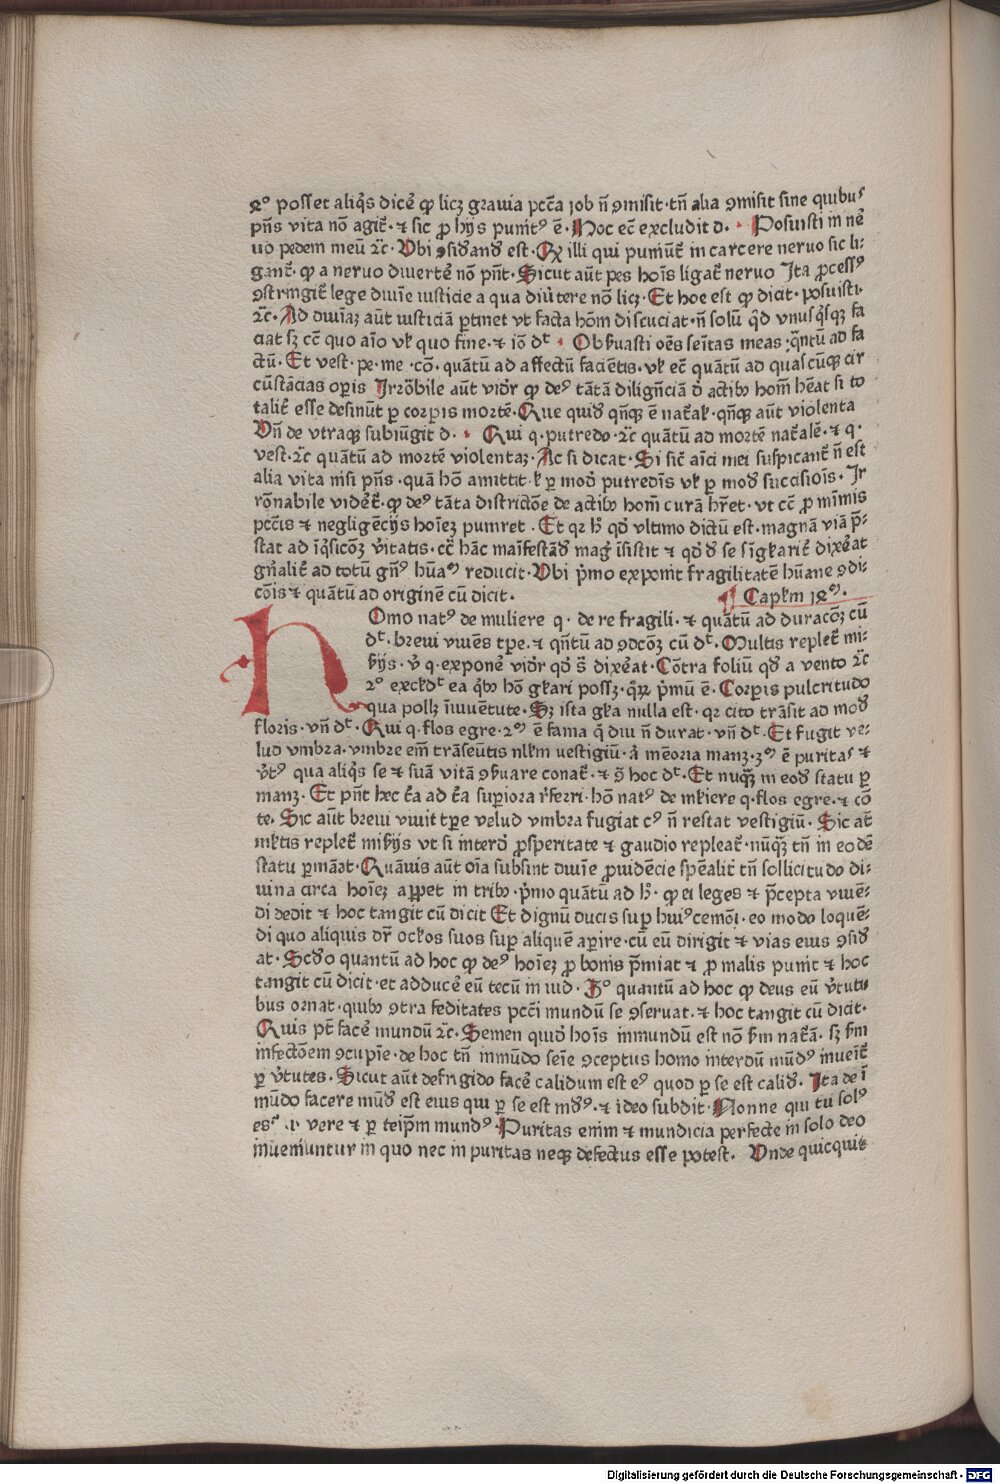 4º posset aliqͥs dicē̉ ꝙ licꝫ grauia pctā job n̄ ꝯmisit·tn̄ alia ꝯmisit sine quibuˢ
pn̄s vita nō agit̉·⁊ sic ꝓ hijs punit᷒ ē·Hoc ec̄ excludit d·Posuisti in n̉e
uo pedem meū ⁊c̄·Vbi ꝯsid̉and̉ est·Qꝫ illi qui puniūt̉ in carcere neruo sic li⸗
gant̉·ꝙ a neruo diuertē̉ nō pn̄t·Sicut aūt pes hoīs ligat̉ neruo Ita ꝓcess᷒
ꝯstringit̉ lege diuīe iusticie a qua diu̓tere nō licꝫ·Et hoc est ꝙ dicit·posuisti·
⁊c̄·Ad diuīaꝫ aūt iusticiā ꝑtinet vt facta hōm discuciat·n̄ solū qͥd vnusqͥsqꝫ fa
ciat sꝫ cc̄ quo aīo vl̕ quo fine·⁊ iō dᵗ·Obẜuasti oēs seītas meas·qn̄tū ad fa
ctū·Et vest·pe·me·cō·quātū ad affectū faciētis·vl̕ ec̄ quātū ad qualcūqꝫ cir
cūstācias oꝑis Irrōbile aūt vid̓r ꝙ de᷒ tātā dilign̄ciā d̓ actibꝫ hom̄ hēat si to
talit̉ esse desinūt ꝑ corꝑis mortē·Que quid̉ qn̄qꝫ ē nat̉al̕·qn̄qꝫ aūt violenta
Vn̄ de vtraqꝫ subiūgit d·Qui q·putredo·⁊c̄ quātū ad mortē nat̉alē·⁊ q·
vest·⁊c̄ quātū ad mortē violentaꝫ·Ac si dicat·Si sic̄ aīci mei suspicant̉ n̄ est
alia vita nisi pn̄s·quā hō amittit·l̕ ꝑ mod̉ putredīs vl̕ ꝑ mod̉ succisiōis·Ir
rōnabile videt̉·ꝙ de᷒ tāta districtōe de actibꝫ hom̄ curā hr̄et·vt cc̄ ꝓ minimis
pctīs ⁊ negligēcijs hoīeꝫ puniret·Et qꝛ h̉ qd̓ vltimo dictū est·magnā viā p̄⸗
stat ad īqͥsicōꝫ v̓itatis·cc̄ hāc maīfestād̉ mag̉ īsistit ⁊ qd̓ d̉ se sīgl̕arit̉ dixe̓at
gn̄alit̉ ad totū gn̄᷒ hūa᷒ reducit·Vbi pͥmo exponit fragilitatē hūane ꝯdi⸗
cōis ⁊ quātū ad originē cū dicit·
Capl̕m 14ᵐ·
HOmo nat᷒ de muliere q·de re fragili·⁊ quātū ad duracōꝫ cū
dᵗ·breui viuēs tꝑe·⁊ qn̄tū ad ꝯdcōꝫ cū dᵗ·Multis replet̉ mi⸗
ẜijs·v̓ q·exponē̉ vid̓r qd̓ s̄ dixe̓at·Cōtra foliū qd̓ a vento ⁊c̄
2º excl̕dᵗ ea qͥbꝫ hō gl̕ari possꝫ·qͣꝝ pͥmū ē·Corꝑis pulcritudo
qua pollꝫ īiuuētute·Sꝫ ista gl̕a nulla est·qꝛ cito trāsit ad mod̉
floris·vn̄ dᵗ·Qui q·flos egre·2ᵐ ē fama qͣ diu n̄ durat·vn̄ dᵗ·Et fugit ve⸗
lud vmbra·vmbre em̄ trāseūtis nll̕m uestigiū·ī mēoria manꝫ·3ᵐ ē puritaˢ ⁊
v̓t᷒ qua aliqͥs se ⁊ suā vitā ꝯẜuare conat̉·⁊ ꝯ̄ hoc dᵗ·Et nuqͣꝫ in eod̉ statu ꝑ
manꝫ·Et pn̄t hec v̓ba ad v̓ba suꝑiora rͤferri·hō nat᷒ de ml̕iere q·flos egre·⁊ cō
te·Sic aūt breui viuit tꝑe velud vmbra fugiat c᷒ n̄ restat vestigiū·Sic at̄
ml̕tis replet̉ miẜijs vt si interd̓ ꝓsꝑitate ⁊ gaudio repleat̉·nūqͣꝫ tn̄ in eodē
statu ꝑmāat·Quāuis aūt oīa subsint diuīe ꝓuidēcie spēalit̉ tn̄ sollicitudo di⸗
uina circa hoīeꝫ apparet in tribꝫ·pͥmo quātū ad h̉·ꝙ ei leges ⁊ p̄cepta viuē⸗
di dedit ⁊ hoc tangit cū dicit Et dignū ducis suꝑ hui᷒cemōī·eo modo loquē⸗
di quo aliquis dr̄ ocl̕os suos suꝑ aliquē aꝑire·cū eū dirigit ⁊ vias eius ꝯsid̉
at·Scd̓o quantū ad hoc ꝙ de᷒ hoīeꝫ ꝓ bonis p̄miat ⁊ ꝓ malis punit ⁊ hoc
tangit cū dicit·et adducē̉ eū tecū in iud·3º quantū ad hoc ꝙ deus eū v̓tuti
bus ornat·quibꝫ ꝯtra feditates pcc̄i mundū se ꝯseruat·⁊ hoc tangit cū dicit·
Quis pt̄ facē̉ mundū ⁊c̄·Semen quid̓ hoīs inmundū est nō ẜm nat̉ā·sꝫ ẜm
infectōem ꝯcupīe·de hoc tn̄ inmūdo seīe ꝯceptus homo interdū mūd᷒ inueīt̉
ꝑ v̓tutes·Sicut aūt defrigido facē̉ calidum est e᷒ quod ꝑ se est calid̉·Ita de ī
mūdo facere mūd̉ est eius qui ꝑ se est md᷒·⁊ ideo subdit·Nonne qui tu sol᷒
es·i·vere ⁊ ꝑ teip̄m mund᷒·Puritas enim ⁊ mundicia perfecte in solo deo
inueniuntur in quo nec in puritas neqꝫ defectus esse potest·Vnde quicquit
Digitalisierung gefördert durch die Deutsche Forschungsgemeinschaft - DFG